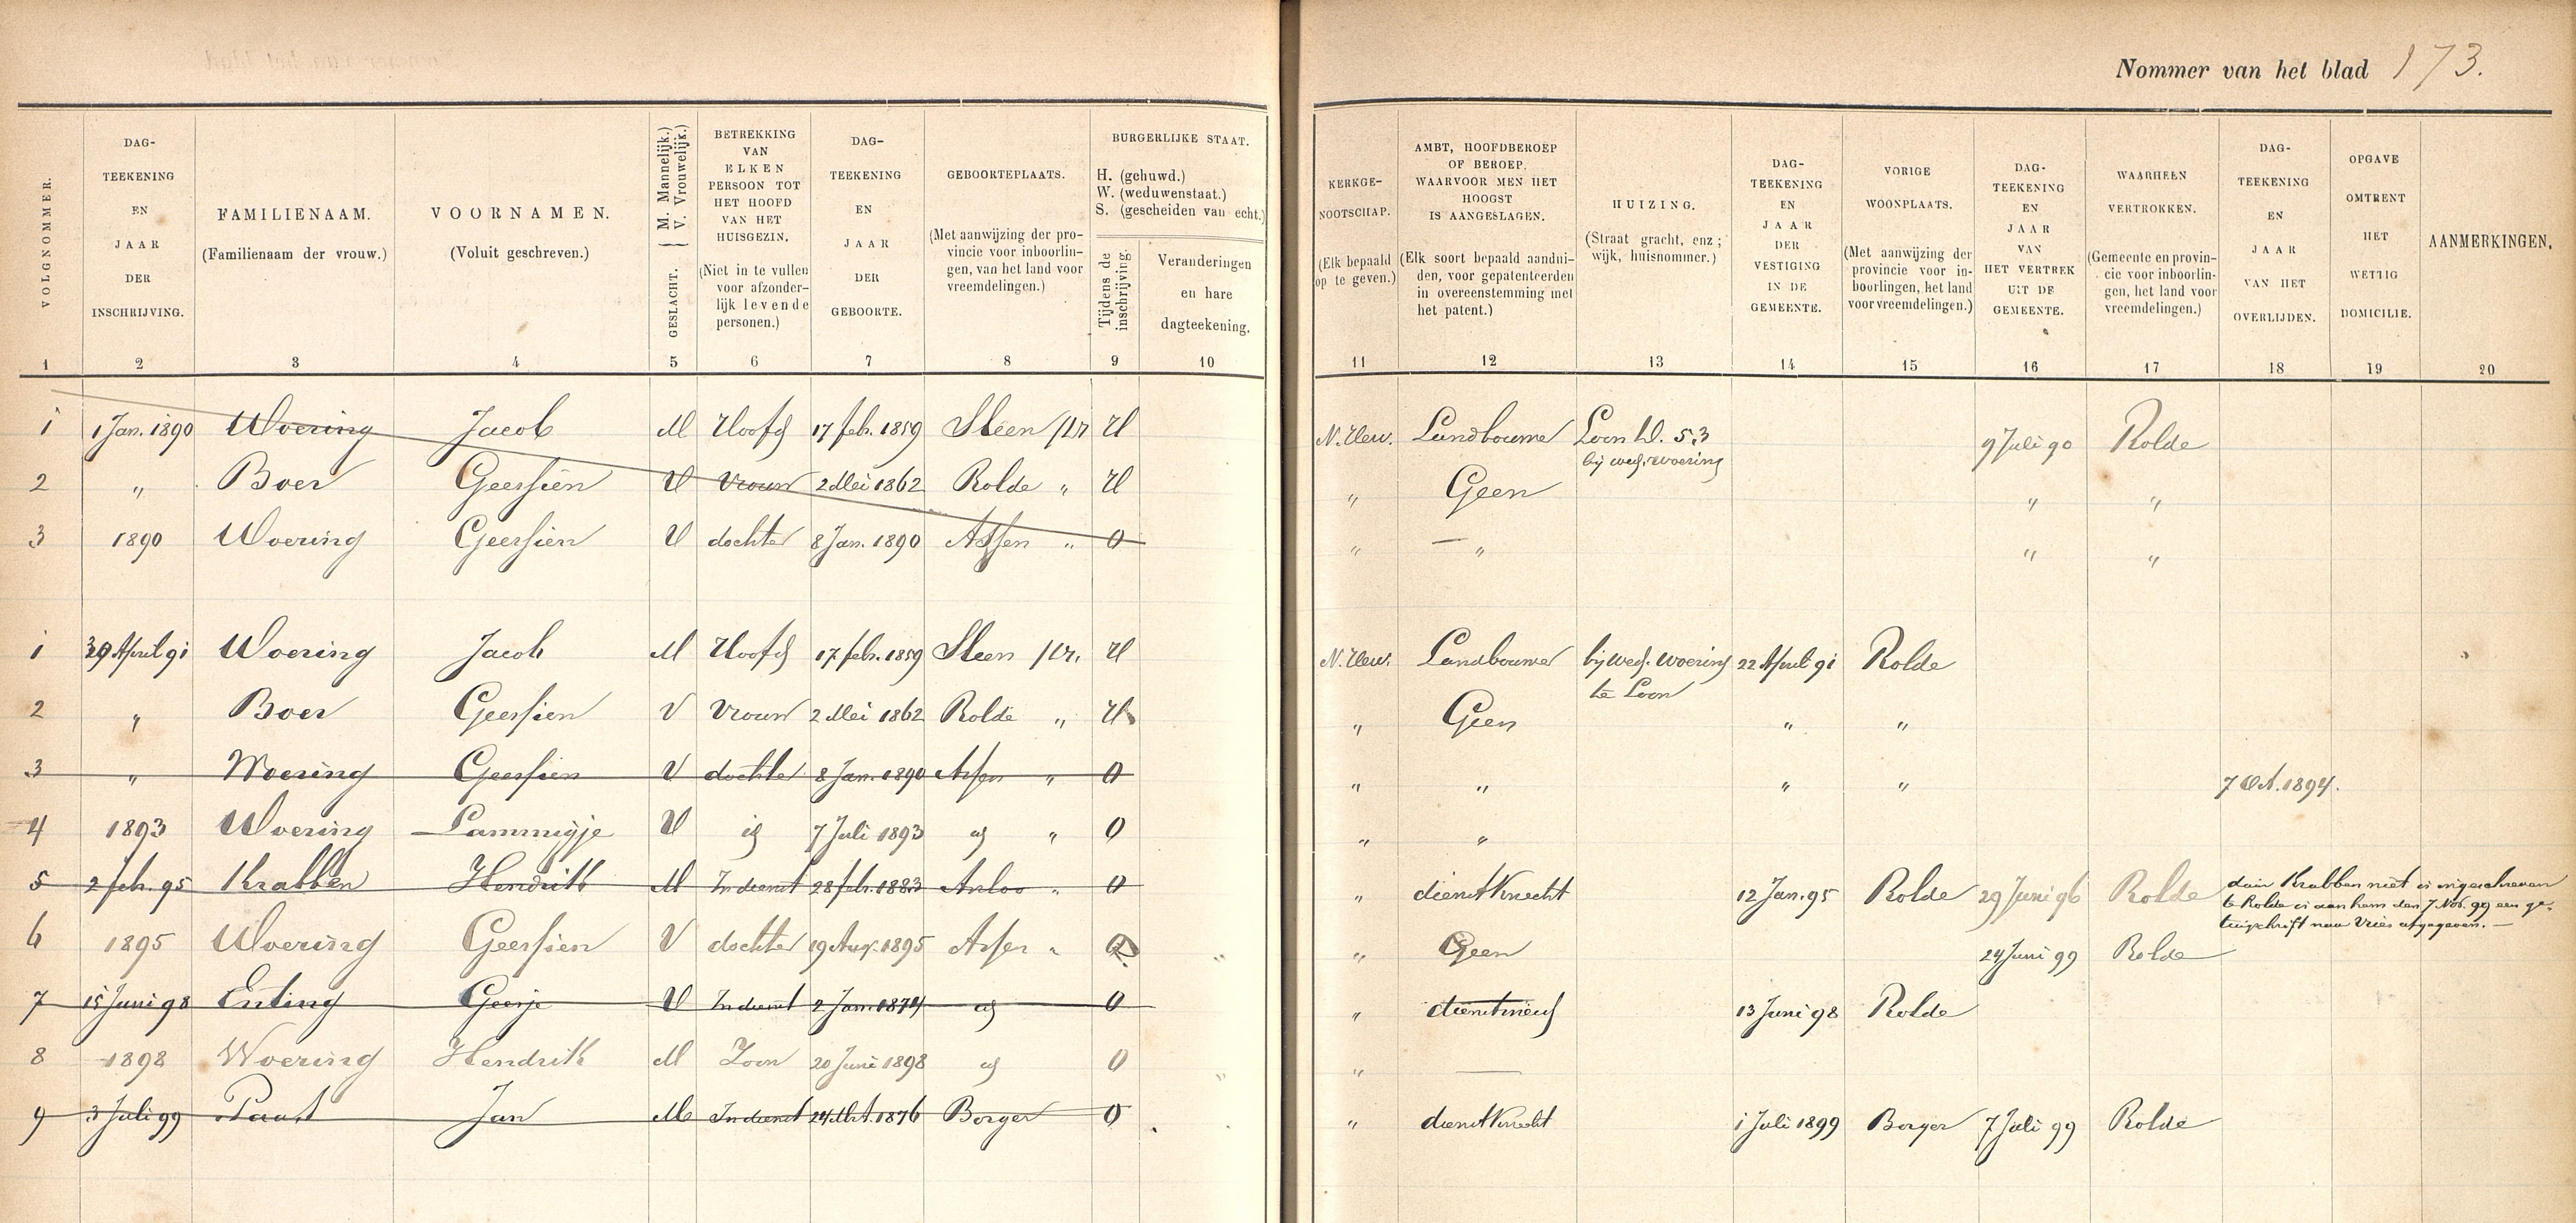 Nommer van het blad 173.
VOLGNOMMER.
DAG-
TEEKENING
EN
JAAR
DER
INSCHRIJVING.
FAMILIENAAM.
(Familienaam der vrouw.)
VOORNAMEN.
(Voluit geschreven.)
GESLACHT. { M. Mannelijk.)
V. Vrouwelijk.)
BETREKKING
VAN
ELKEN
PERSOON TOT
HET HOOFD
VAN HET
HUISGEZIN.
(Niet in te vullen
voor afzonder-
lijk levende
personen.)
DAG-
TEEKENING
EN
JAAR
DER
GEBOORTE.
GEBOORTEPLAATS.
(Met aanwijzing der pro-
vincie voor inboorlin-
gen, van het land voor
vreemdelingen.)
BURGERLIJKE STAAT.
H. (gehuwd.)
W. (weduwenstaat.)
S. (gescheiden van echt.)
Tijdens de
inschrijving.
Veranderingen
en hare
dagteekening.
KERKGE-
NOOTSCHAP.
(Elk bepaald
op te geven.)
AMBT, HOOFDBEROEP
OF BEROEP.
WAARVOOR MEN HET
HOOGST
IS AANGESLAGEN.
(Elk soort bepaald aandui-
den, voor gepatenteerden
in overeenstemming met
het patent.)
HUIZING.
(Straat gracht, enz;
wijk, huisnommer.)
DAG-
TEEKENING
EN
JAAR
DER
VESTIGING
IN DE
GEMEENTE.
VORIGE
WOONPLAATS.
(Met aanwijzing der
provincie voor in-
boorlingen, het land
voor vreemdelingen.)
DAG-
TEEKENING
EN
JAAR
VAN
HET VERTREK
UIT DE
GEMEENTE.
WAARHEEN
VERTROKKEN.
(Gemeente en provin-
cie voor inboorlin-
gen, het land voor
vreemdelingen.)
DAG-
TEEKENING
EN
JAAR
VAN HET
OVERLIJDEN.
OPGAVE
OMTRENT
HET
WETTIG
DOMICILIE.
AANMERKINGEN.
1 2 3 4 5 6 7 8 9 10 11 12 13 14 15 16 17 18 19 20
1 1 Jan. 1890 Woering Jacob M Hoofd 17 feb. 1859 Sleen Dr H N. Herv. Landbouwer Loon W. 53 9 Juli 90 Rolde
bij wed. Woering
2 " Boer Geessien V Vrouw 2 Mei 1862 Rolde " H " Geen " "
3 1890 Woering Geessien V dochter 8 Jan. 1890 Assen " O " — " " "
1 29 April 91 Woering Jacob M Hoofd 17 feb. 1859 Sleen Dr. H N. Herv. Landbouwer bij wed. Woering 22 April 91 Rolde
te Loon
2 " Boer Geessien V Vrouw 2 Mei 1862 Rolde " H " Geen " "
3 " Woering Geessien V dochter 8 Jan. 1890 Assen " O " " " " 7 Oct. 1894.
4 1893 Woering Lammigje V id 7 Juli 1893 id " O " "
5 2 feb. 95 Krabben Hendrik M In dienst 28 feb. 1883 Anloo " O " dienstknecht 12 Jan. 95 Rolde 29 Juni 96 Rolde daar Krabben niet is ingeschreven
te Rolde is aan hem den 7 Nov. 99 een ge-
tuigschrift naar Vries afgegeven. —
6 1895 Woering Geessien V dochter 19 Aug. 1895 Assen " O " Geen 24 Juni 99 Rolde
7 15 Juni 98 Enting Geesje V In dienst 2 Jan. 1874 id O " dienstmeid 13 Juni 98 Rolde
8 1898 Woering Hendrik M Zoon 20 Juni 1898 id O " —
9 3 Juli 99 Paast Jan M In dienst 24 1876 Borger O " dienstknecht 1 Juli 1899 Borger 7 Juli 99 Rolde